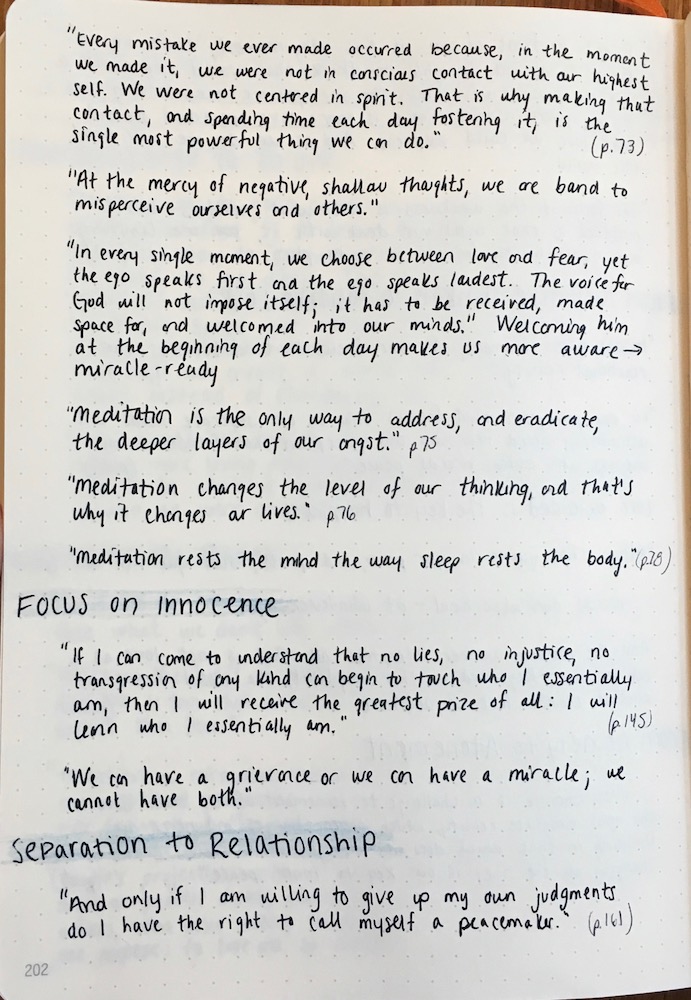 "Every mistake we ever made occurred because, in the moment
we made it, we were not in conscious contact with our highest
self. We were not centred in spirit. That is why making that
contact, and spending time each day fostering it, is the
single most powerful thing we can do." (p.73)
"At the mercy of negative, shallow thoughts, we are bound to
misperceive ourselves and others."
"In every single moment, we choose between love and fear, yet
the ego speaks first and the ego speaks loudest. The voice for
God will not impose itself; it has to be received, made
space for, and welcomed into our minds." Welcoming him
at the beginning of each day makes us more aware →
miracle-ready
"Meditation is the only way to address, and eradicate,
the deeper layers of our angst." p75
"Meditation changes the level of our thinking, and that's
why it changes our lives." p.76
"Meditation rests the mind the way sleep rests the body." (p.78)
Focus on Innocence
"If I can come to understand that no lies, no injustice, no
transgression of any kind can begin to touch who I essentially
am, then I will receive the greatest prize of all: I will
learn who I essentially am." (p.145)
"We can have a grievance or we can have a miracle; we
cannot have both."
Separation to Relationship
"And only if I am willing to give up my own judgments
do I have the right to call myself a peacemaker." (p.161)
202